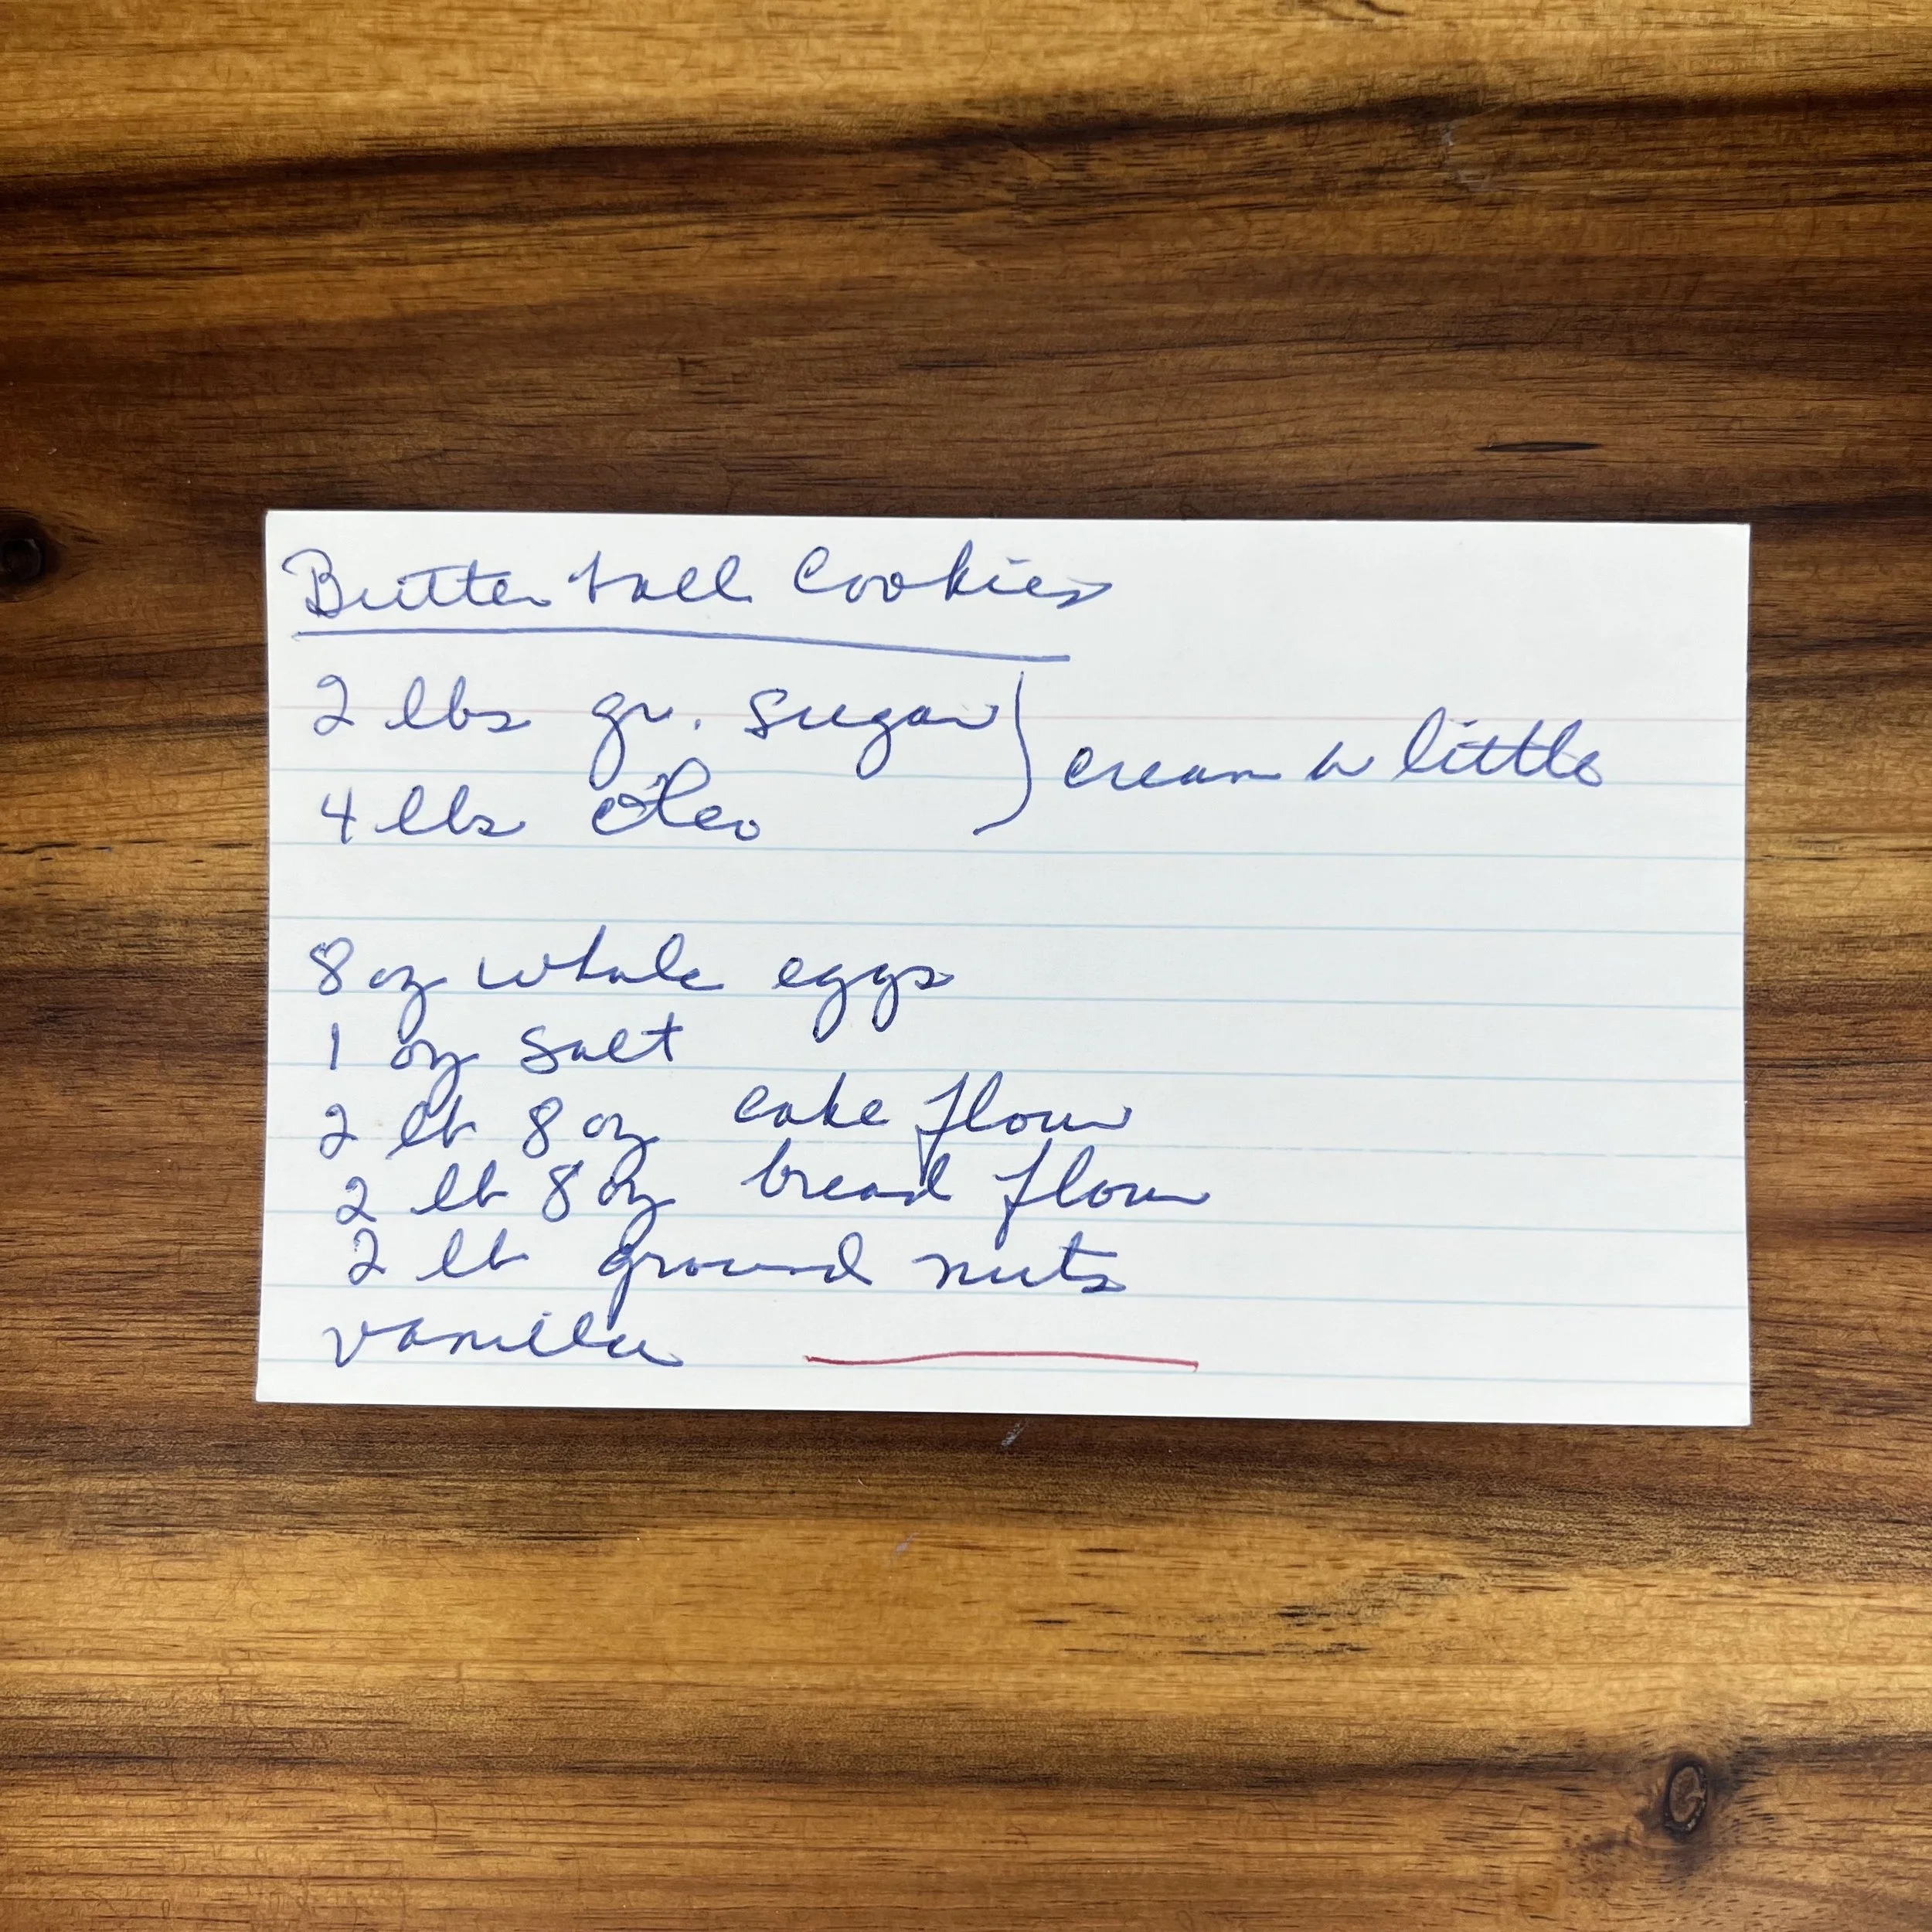 Butter ball Cookies
2 lbs gr. sugar
4 lbs oleo
cream a little
8 oz whole eggs
1 oz salt
2 lb 8 oz cake flour
2 lb 8 oz bread flour
2 lb ground nuts
vanilla